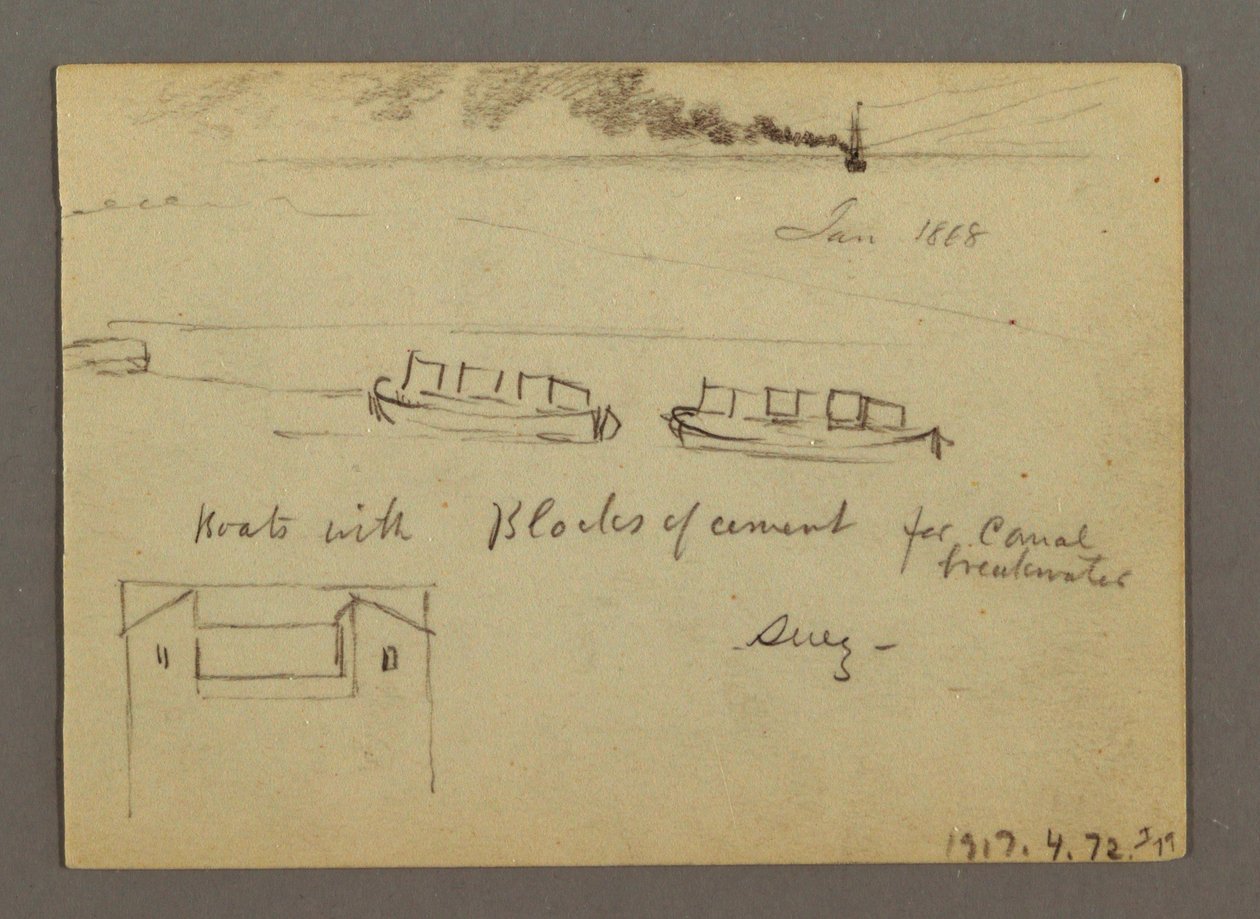 Jan 1868
Boats with Blocks of cement for Canal
breakwater
Suez -
1917.4.72.